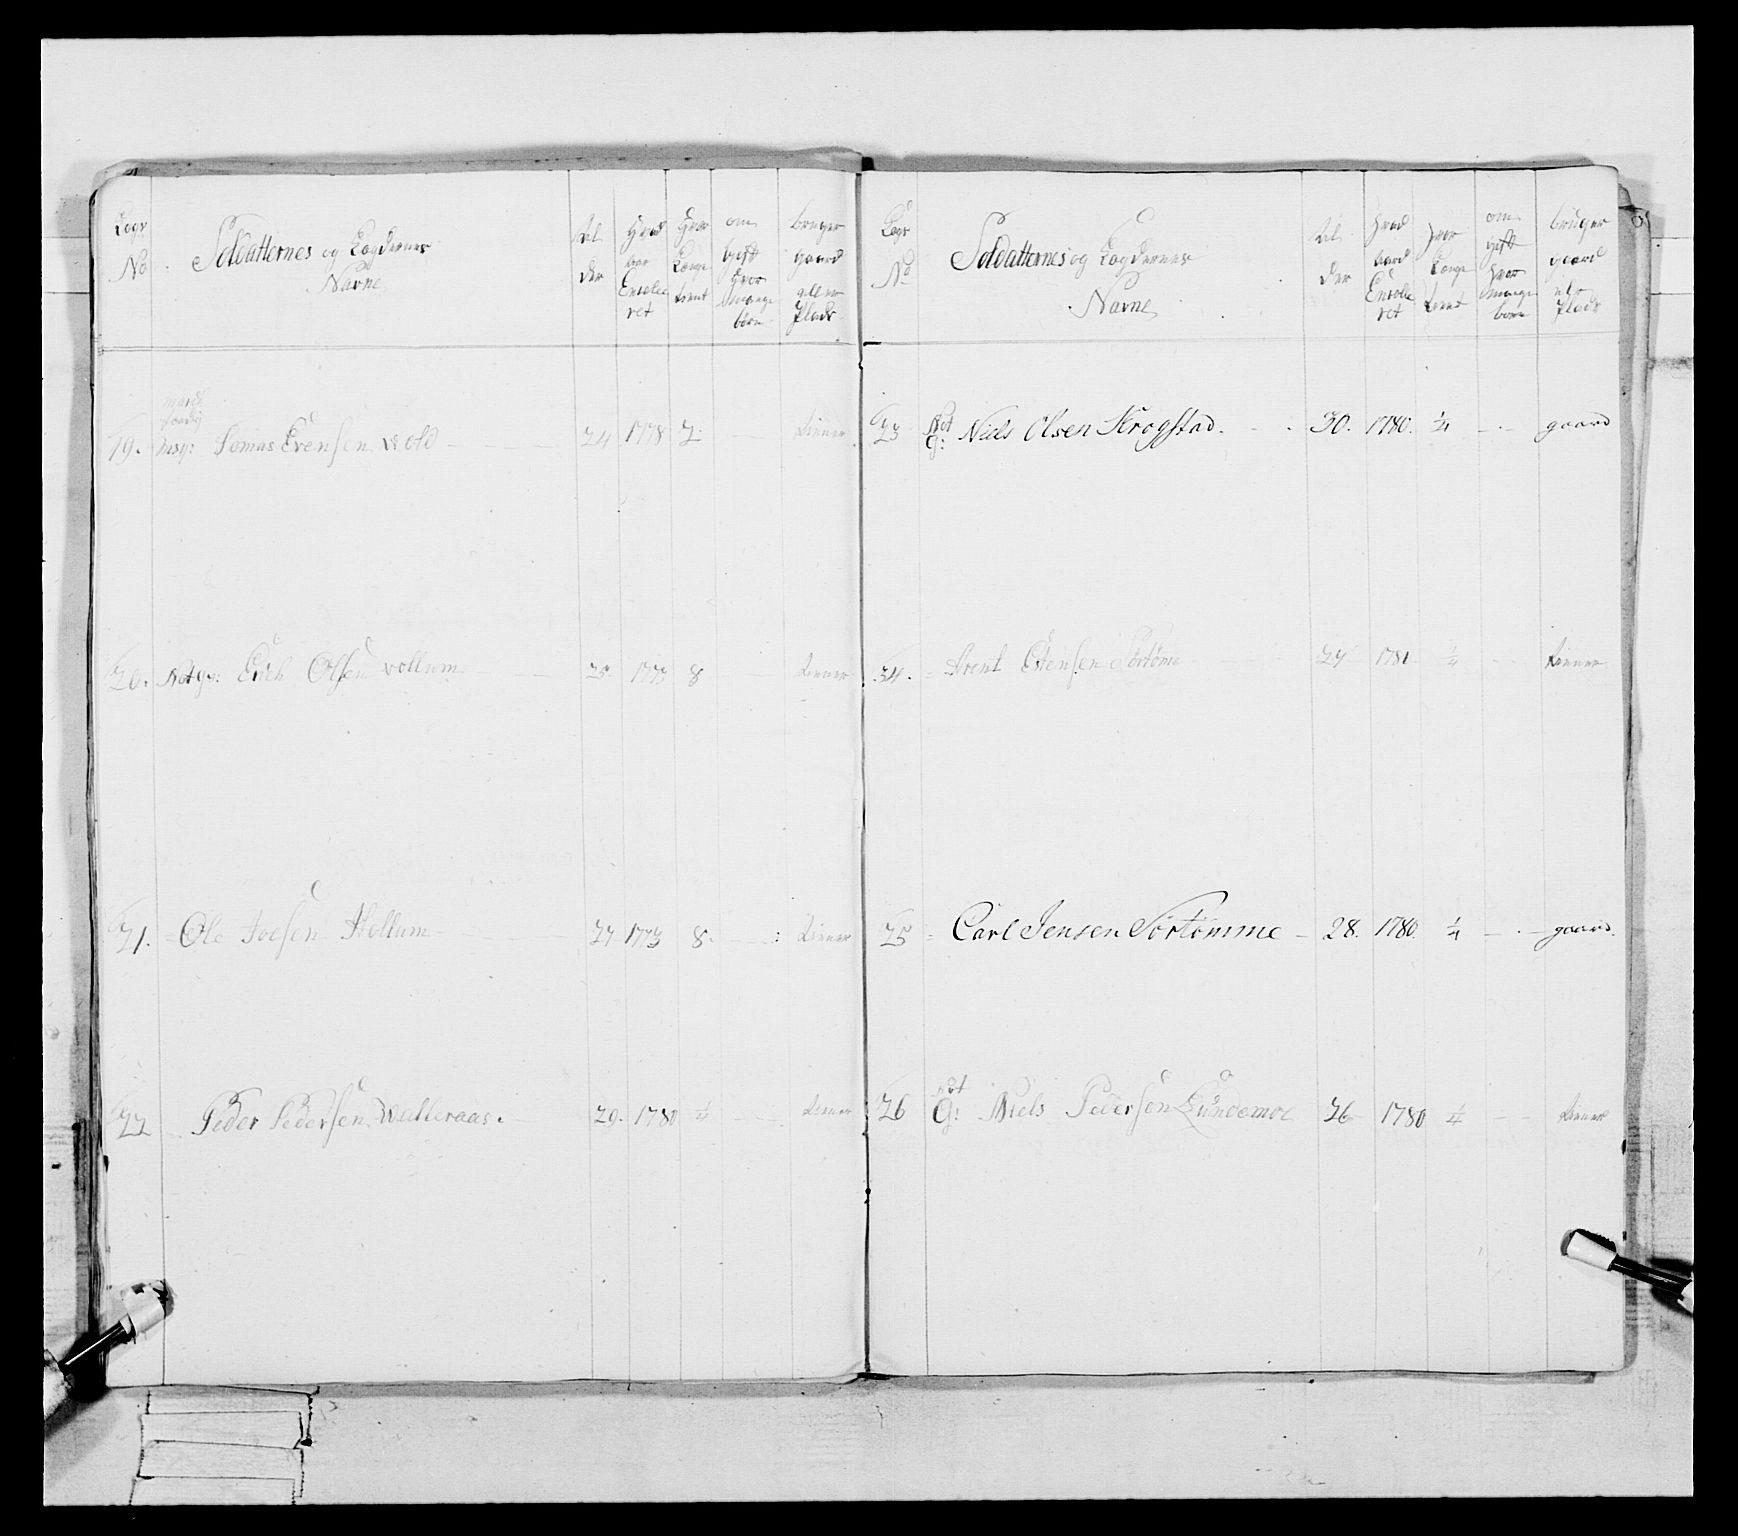 Lægs No. Soldatternes og Lægdernes Navne Al der Hvad aar Enrolle ret Hvor Længe tient om gift hvor mange børn bruger gaard eller Plads
19. Tomas Evensen wold 24 1778 2. tiener
20. Notg: Erich Olsen vollum 25 1773 8 tiener
21. Ole Joesen Hollum 27 1773 8. tiener
22 Peder Pedersen Walleraas. 29. 1780 1/4 tiener
Lægs No Soldatternes og Lægdernes Navne Al der Hvad aard Enrolle ret hvor Længe tient om gift hvor mange børn bruger gaard elr Plads
23 Not g: Niels Olsen Krogstad. 30. 1780. 1/4 gaard
24. Arent Estensen Sørtøme 24 1781 1/4 tiener
25 Carl Jensen Sørtømme 28. 1780. 1/4 gaard.
26 Not G: Niels Pedersen Lundemoe 26 1780 1/4 tiener